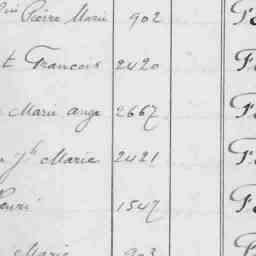 Pierre Marie 902
t François 2420
Marie ange 2667
Jh Marie 2421
Henri 1547
Marie 903